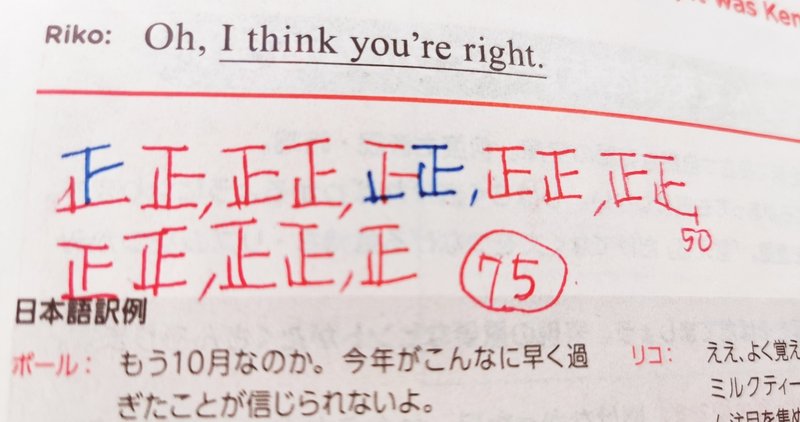 was Ken
Riko: Oh, I think you're right.
正 正, 正 正, 正 正, 正 正, 正 正
50
正 正, 正 正, 正
75
日本語訳例
ポール： もう10月なのか。今年がこんなに早く過
ぎたことが信じられないよ。
リコ： ええ、よく覚え
ミルクティー